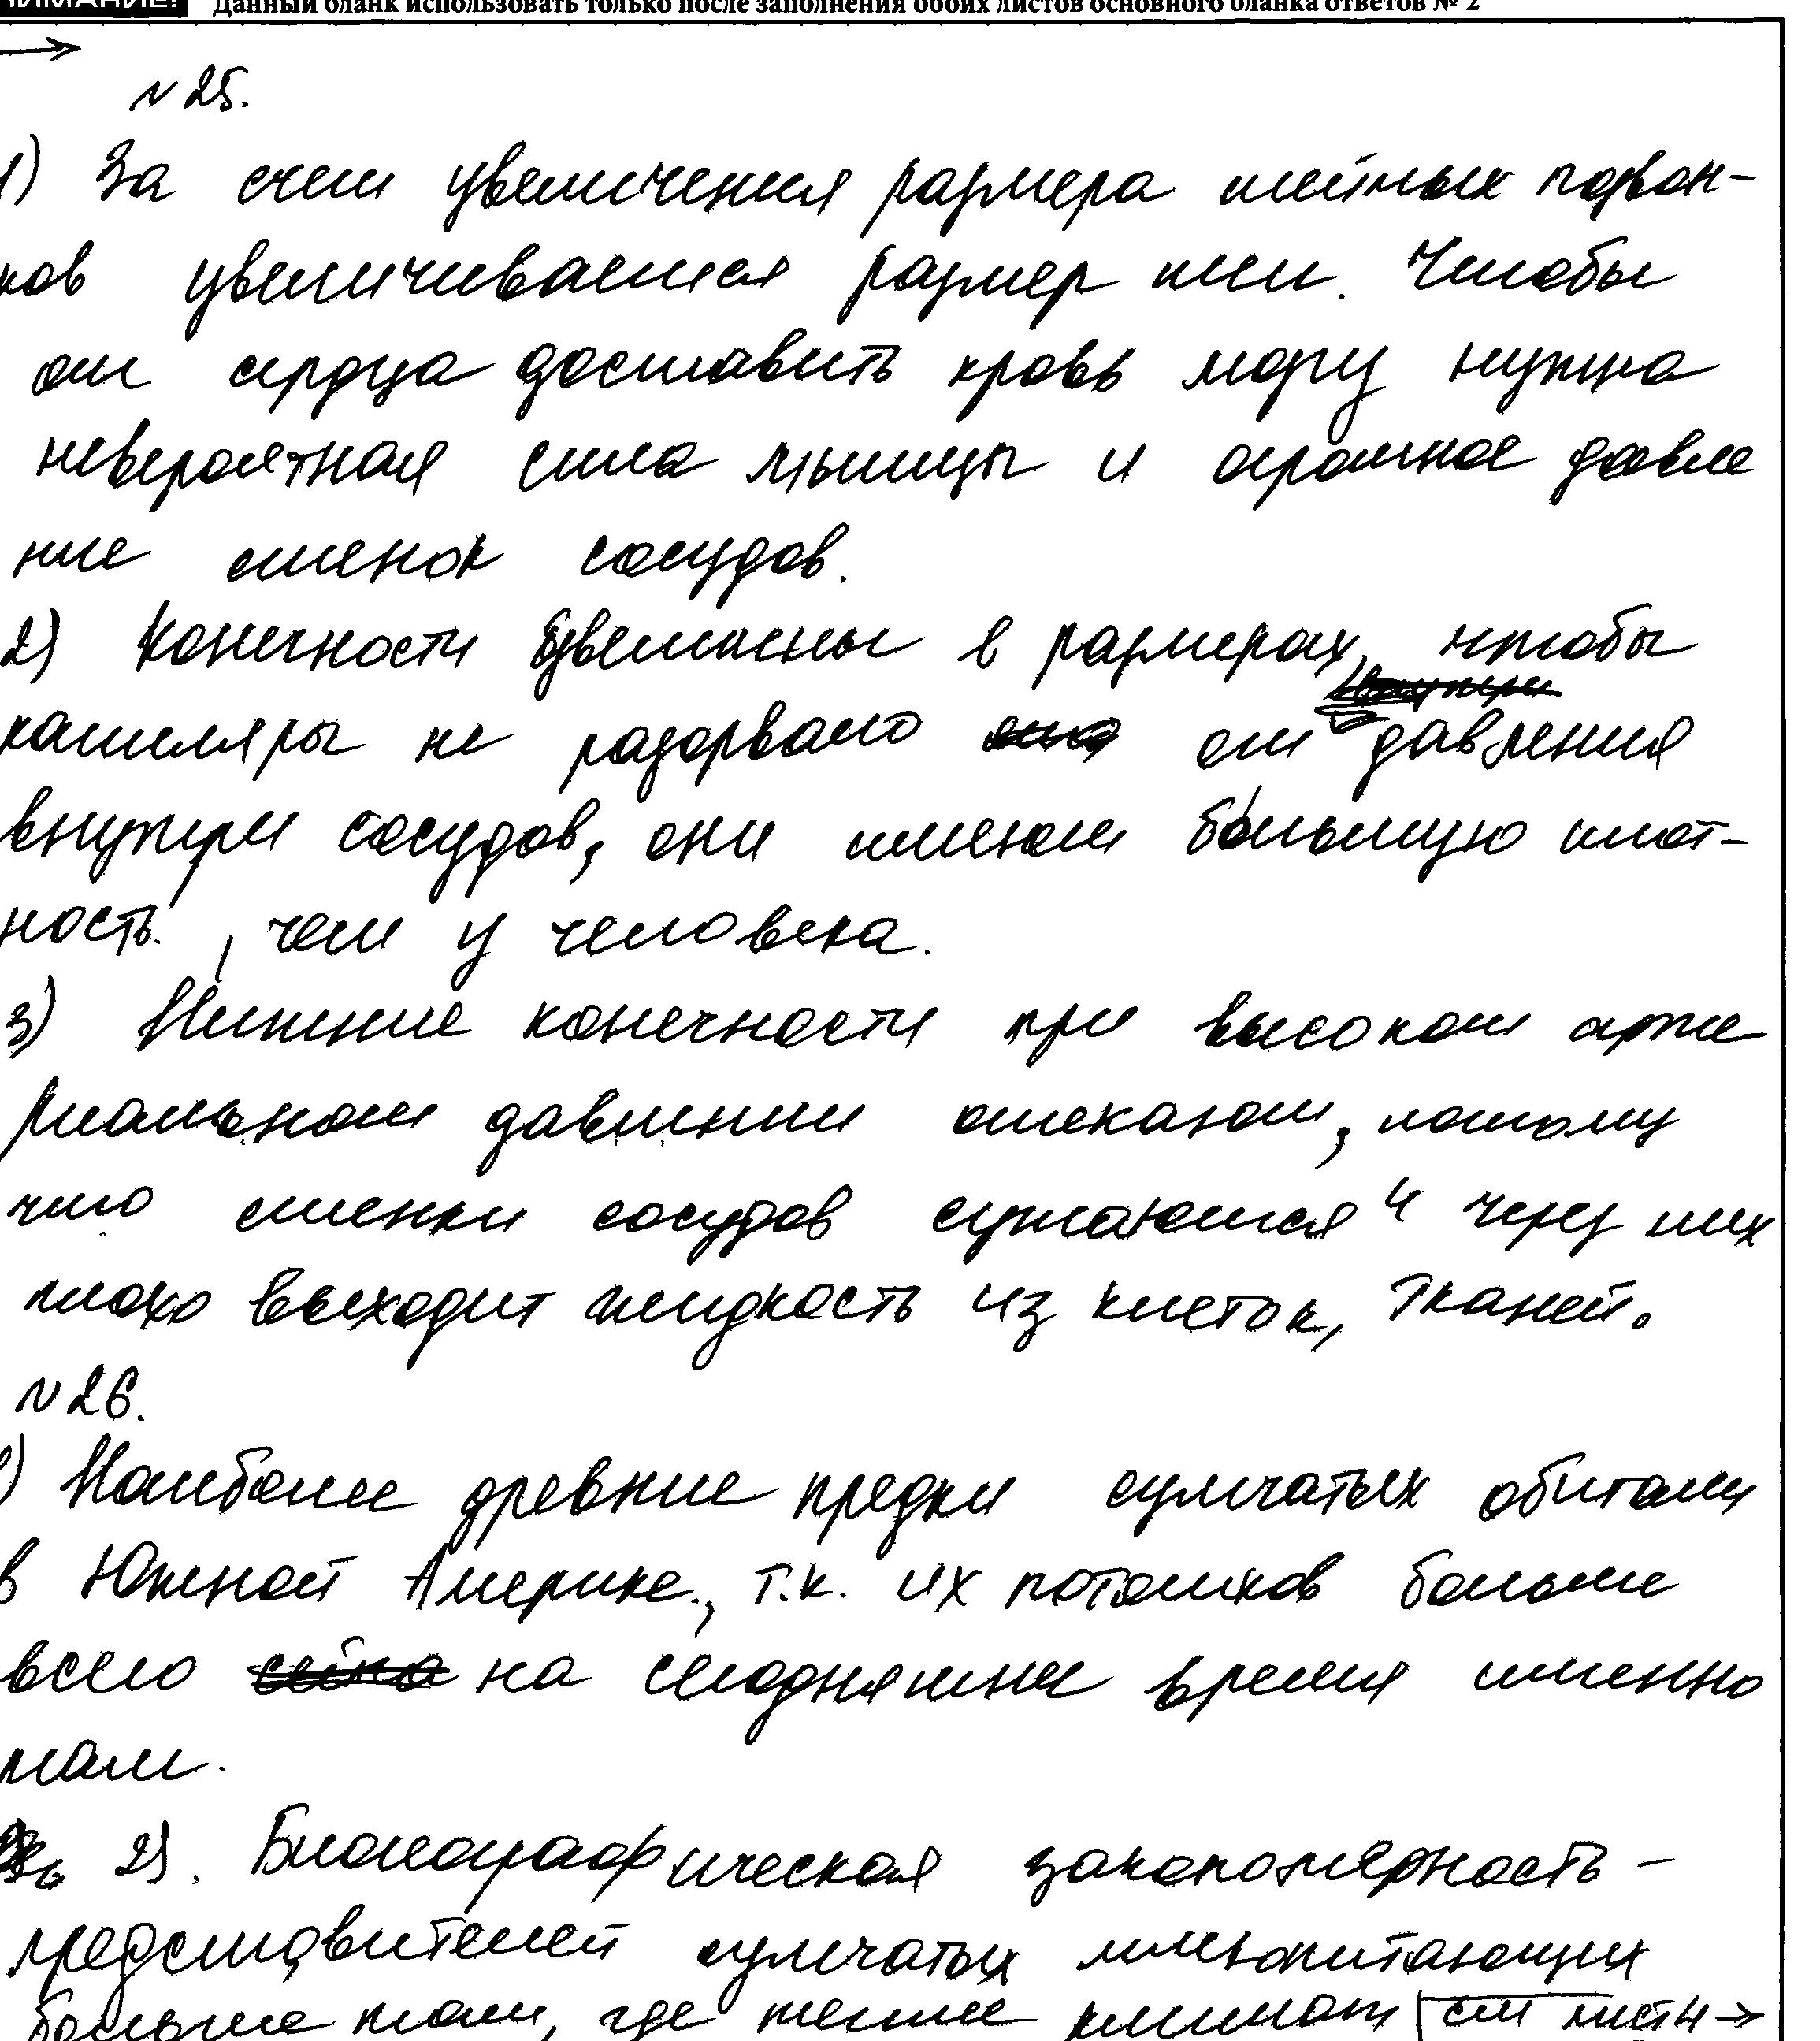 НИМАНИЕ! Данный бланк использовать только после заполнения обоих листов основного бланка ответов № 2
→
№25.
1) За счет увеличения размера шейных позвон-
ков увеличивается размер шеи. Чтобы
от сердца доставить кровь мозгу нужна
невероятная сила мышцы и огромное давле
ние стенок сосудов.
2) Конечности увеличены в размерах, чтобы
капилляры не разорвало от давления
внутри сосудов, они имеют большую плот-
ность, чем у человека.
3) Нижние конечности при высоком арте
риальном давлении отекают, потому
что стенки сосудов сужаются и через них
плохо выходит жидкость из клеток, тканей.
№26.
1) Наиболее древние предки сумчатых обитали
в Южной Америке, т.к. их потомков больше
всего на сегодняшнее время именно
там.
2). Биогеографическая закономерность -
представителей сумчатых млекопитающих
больше там, где теплее климат см лист 4 →